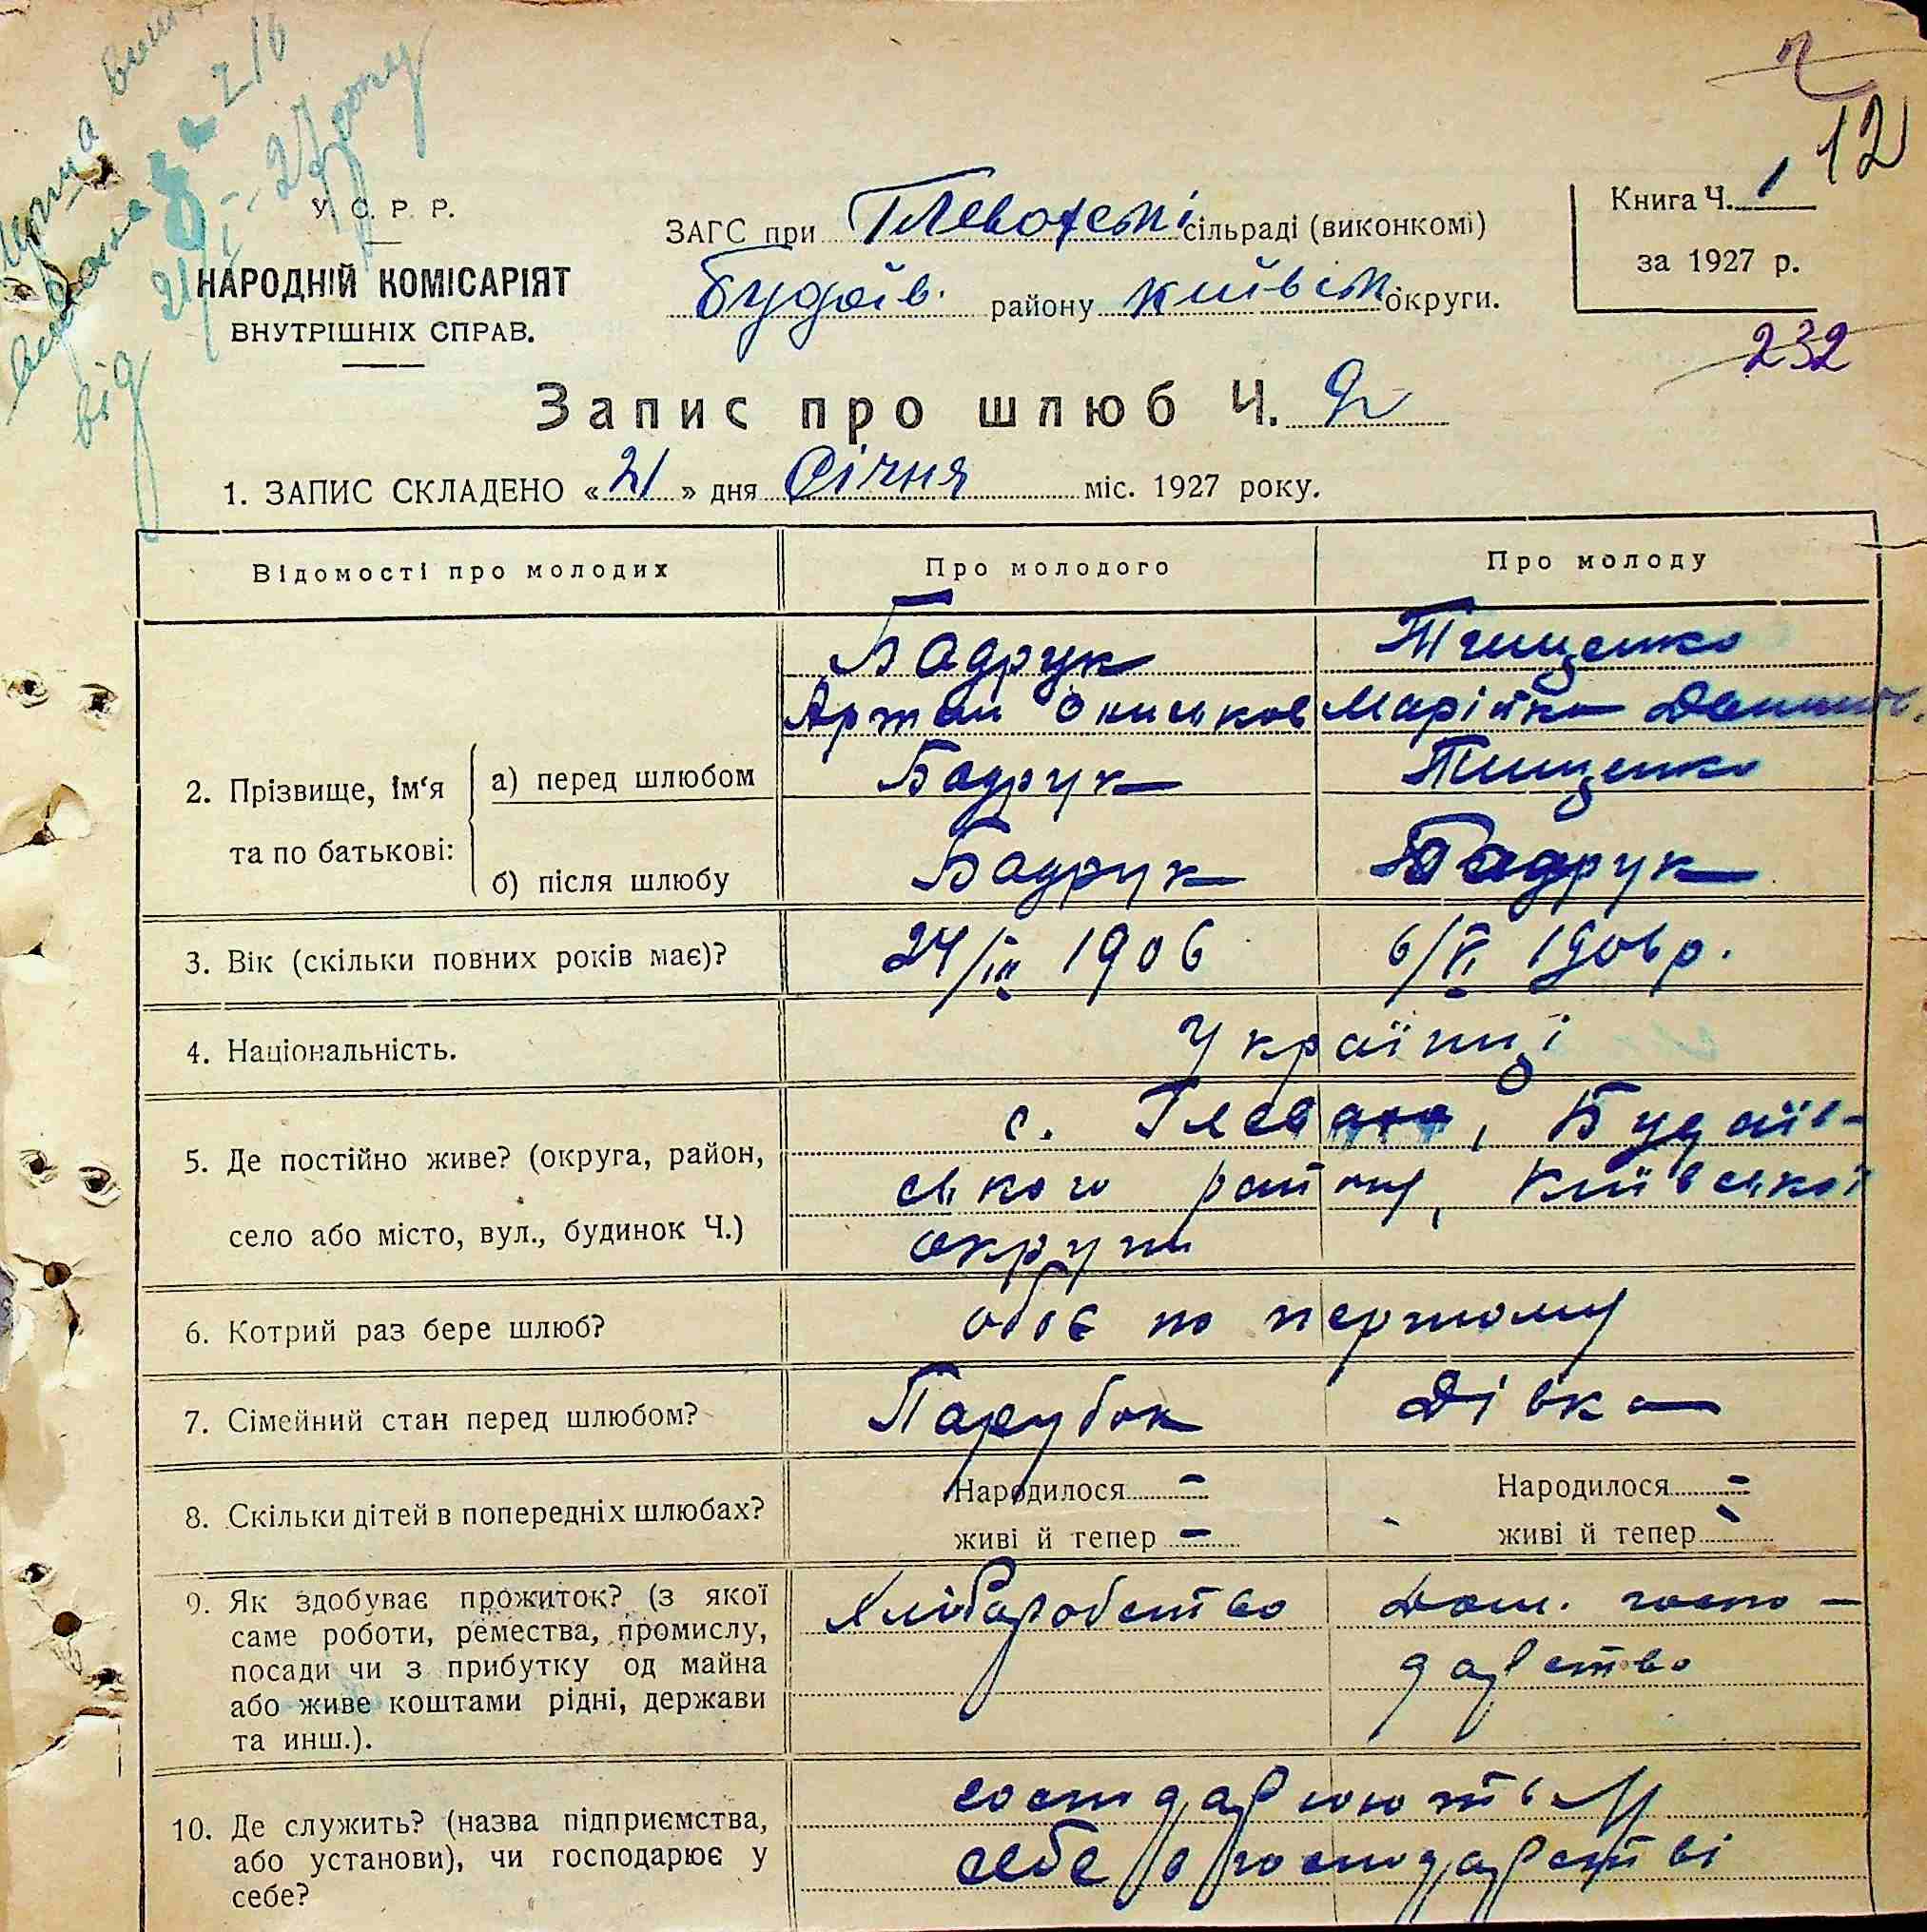 12
У. С. Р. Р.
НАРОДНІЙ КОМІСАРІЯТ
ВНУТРІШНІХ СПРАВ.
ЗАГС при Глевахській сільраді (виконкомі)
Будаїв. району Київськ округи.
Книга Ч. 1
за 1927 р.
232
від 21/I-27 року
Запис про шлюб Ч. 2
1. ЗАПИС СКЛАДЕНО «21» дня Січня міс. 1927 року.
Відомості про молодих
Про молодого
Про молоду
2. Прізвище, ім‘я та по батькові:
Бадрук
Артем Ониськов
Тищенко
Марійка
а) перед шлюбом
Бадрук
Тищенко
б) після шлюбу
Бадрук
Бадрук
3. Вік (скільки повних років має)?
24/III 1906
6/VI 1906 р.
4. Національність.
Українці
5. Де постійно живе? (округа, район,
село або місто, вул., будинок Ч.)
с. Глеваха, Будаїв-
ського району, Київської
округи
6. Котрий раз бере шлюб?
обоє по першому
7. Сімейний стан перед шлюбом?
Парубок
Дівка
8. Скільки дітей в попередніх шлюбах?
Народилося –
живі й тепер –
Народилося –
живі й тепер –
9. Як здобуває прожиток? (з якої
саме роботи, ремества, промислу,
посади чи з прибутку од майна
або живе коштами рідні, держави
та инш.).
Хліборобство
Дом. госпо-
дарство
10. Де служить? (назва підприємства,
або установи), чи господарює у
себе?
господарюють у
себе в господарстві